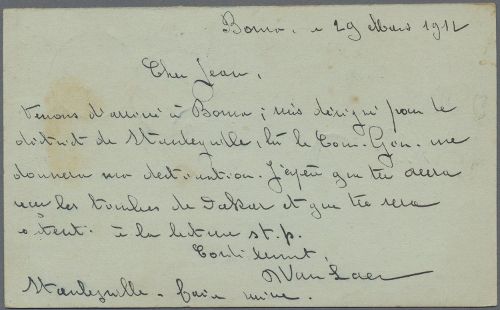 Boma, le 29 Mars 1912
Cher Jean,
Venons d'arriver à Boma; suis désigné pour le
district de Stanleyville, là le Com. Gén. me
donnera ma destination. J'espère que tu auras
reçu les timbres de Dakar et que tu seras
content. à la lecture st. p.
Cordialement,
A Van Laer
Stanleyville - faire suivre.